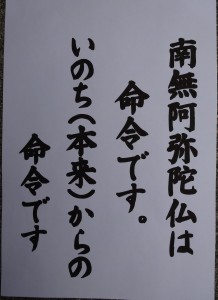 南無阿弥陀仏は
命令です。
いのち(本来)からの
命令です